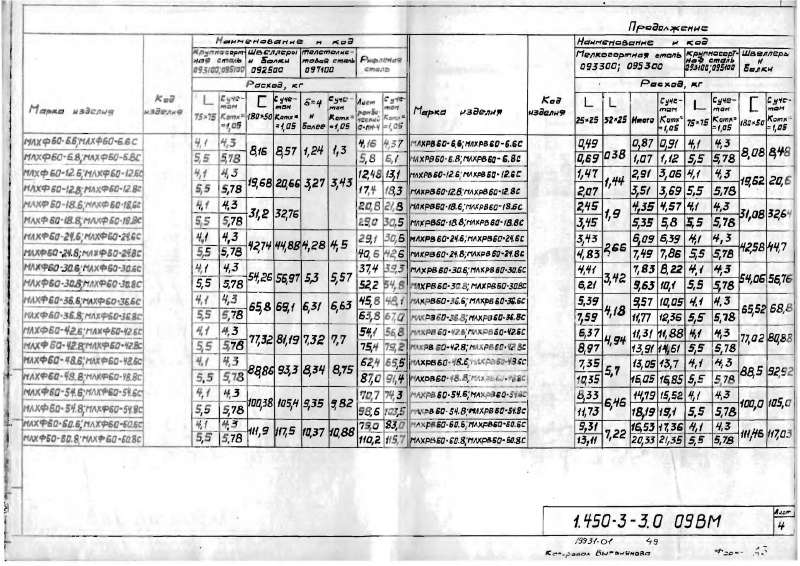 Продолжение
Наименование и код
Крупносорт-ная сталь 093100; 095100
Швеллеры и балки 092500
Толстолис-товая сталь 097100
Рифленая сталь
Расход, кг
Марка изделия
Код изделия
L 75×75
С учетом Kотх=1,05
[ 180×50
С учетом Kотх=1,05
δ=4 и более
С учетом Kотх=1,05
Лист
С учетом Kотх=1,05
МЛХФ60-6.6; МЛХФ60-6.6С 4,1 4,3 8,16 8,57 1,24 1,3 4,16 4,37
МЛХФ60-6.8; МЛХФ60-6.8С 5,5 5,78 5,8 6,1
МЛХФ60-12.6; МЛХФ60-12.6С 4,1 4,3 19,68 20,66 3,27 3,43 12,48 13,1
МЛХФ60-12.8; МЛХФ60-12.8С 5,5 5,78 17,4 18,3
МЛХФ60-18.6; МЛХФ60-18.6С 4,1 4,3 31,2 32,76 20,8 21,8
МЛХФ60-18.8; МЛХФ60-18.8С 5,5 5,78 29,0 30,5
МЛХФ60-24.6; МЛХФ60-24.6С 4,1 4,3 42,74 44,88 4,28 4,5 29,1 30,6
МЛХФ60-24.8; МЛХФ60-24.8С 5,5 5,78 40,6 42,6
МЛХФ60-30.6; МЛХФ60-30.6С 4,1 4,3 54,26 56,97 5,3 5,57 37,4 39,3
МЛХФ60-30.8; МЛХФ60-30.8С 5,5 5,78 52,2 54,8
МЛХФ60-36.6; МЛХФ60-36.6С 4,1 4,3 65,8 69,1 6,31 6,63 45,8 48,1
МЛХФ60-36.8; МЛХФ60-36.8С 5,5 5,78 63,8 67,0
МЛХФ60-42.6; МЛХФ60-42.6С 4,1 4,3 77,32 81,19 7,32 7,7 54,1 56,8
МЛХФ60-42.8; МЛХФ60-42.8С 5,5 5,78 75,4 79,2
МЛХФ60-48.6; МЛХФ60-48.6С 4,1 4,3 88,86 93,3 8,34 8,75 62,4 65,5
МЛХФ60-48.8; МЛХФ60-48.8С 5,5 5,78 87,0 91,4
МЛХФ60-54.6; МЛХФ60-54.6С 4,1 4,3 100,38 105,4 9,35 9,82 70,7 74,3
МЛХФ60-54.8; МЛХФ60-54.8С 5,5 5,78 98,6 103,5
МЛХФ60-60.6; МЛХФ60-60.6С 4,1 4,3 111,9 117,5 10,37 10,88 79,0 83,0
МЛХФ60-60.8; МЛХФ60-60.8С 5,5 5,78 110,2 115,7
Наименование и код
Мелкосортная сталь 093300; 095300
Крупносорт-ная сталь 093100; 095100
Швеллеры и балки
Расход, кг
Марка изделия
Код изделия
L 25×25
L 52×25
Итого
С учетом Kотх=1,05
L 75×75
С учетом Kотх=1,05
[ 180×50
С учетом Kотх=1,05
МЛХРВ60-6.6; МЛХРВ60-6.6С 0,49 0,38 0,87 0,91 4,1 4,3 8,08 8,48
МЛХРВ60-6.8; МЛХРВ60-6.8С 0,69 1,07 1,12 5,5 5,78
МЛХРВ60-12.6; МЛХРВ60-12.6С 1,47 1,44 2,91 3,06 4,1 4,3 19,62 20,6
МЛХРВ60-12.8; МЛХРВ60-12.8С 2,07 3,51 3,69 5,5 5,78
МЛХРВ60-18.6; МЛХРВ60-18.6С 2,45 1,9 4,35 4,57 4,1 4,3 31,08 32,64
МЛХРВ60-18.8; МЛХРВ60-18.8С 3,45 5,35 5,8 5,5 5,78
МЛХРВ60-24.6; МЛХРВ60-24.6С 3,43 2,66 6,09 6,39 4,1 4,3 42,58 44,7
МЛХРВ60-24.8; МЛХРВ60-24.8С 4,83 7,49 7,86 5,5 5,78
МЛХРВ60-30.6; МЛХРВ60-30.6С 4,41 3,42 7,83 8,22 4,1 4,3 54,06 56,76
МЛХРВ60-30.8; МЛХРВ60-30.8С 6,21 9,63 10,1 5,5 5,78
МЛХРВ60-36.6; МЛХРВ60-36.6С 5,39 4,18 9,57 10,05 4,1 4,3 65,52 68,8
МЛХРВ60-36.8; МЛХРВ60-36.8С 7,59 11,77 12,36 5,5 5,78
МЛХРВ60-42.6; МЛХРВ60-42.6С 6,37 4,94 11,31 11,88 4,1 4,3 77,02 80,88
МЛХРВ60-42.8; МЛХРВ60-42.8С 8,97 13,91 14,61 5,5 5,78
МЛХРВ60-48.6; МЛХРВ60-48.6С 7,35 5,7 13,05 13,7 4,1 4,3 88,5 92,92
МЛХРВ60-48.8; МЛХРВ60-48.8С 10,35 16,05 16,85 5,5 5,78
МЛХРВ60-54.6; МЛХРВ60-54.6С 8,33 6,46 14,79 15,52 4,1 4,3 100,0 105,0
МЛХРВ60-54.8; МЛХРВ60-54.8С 11,73 18,19 19,1 5,5 5,78
МЛХРВ60-60.6; МЛХРВ60-60.6С 9,31 7,22 16,53 17,36 4,1 4,3 111,46 117,03
МЛХРВ60-60.8; МЛХРВ60-60.8С 13,11 20,33 21,35 5,5 5,78
1.450-3-3.0 09ВМ
Лист
4
19931-01 49
Копировал